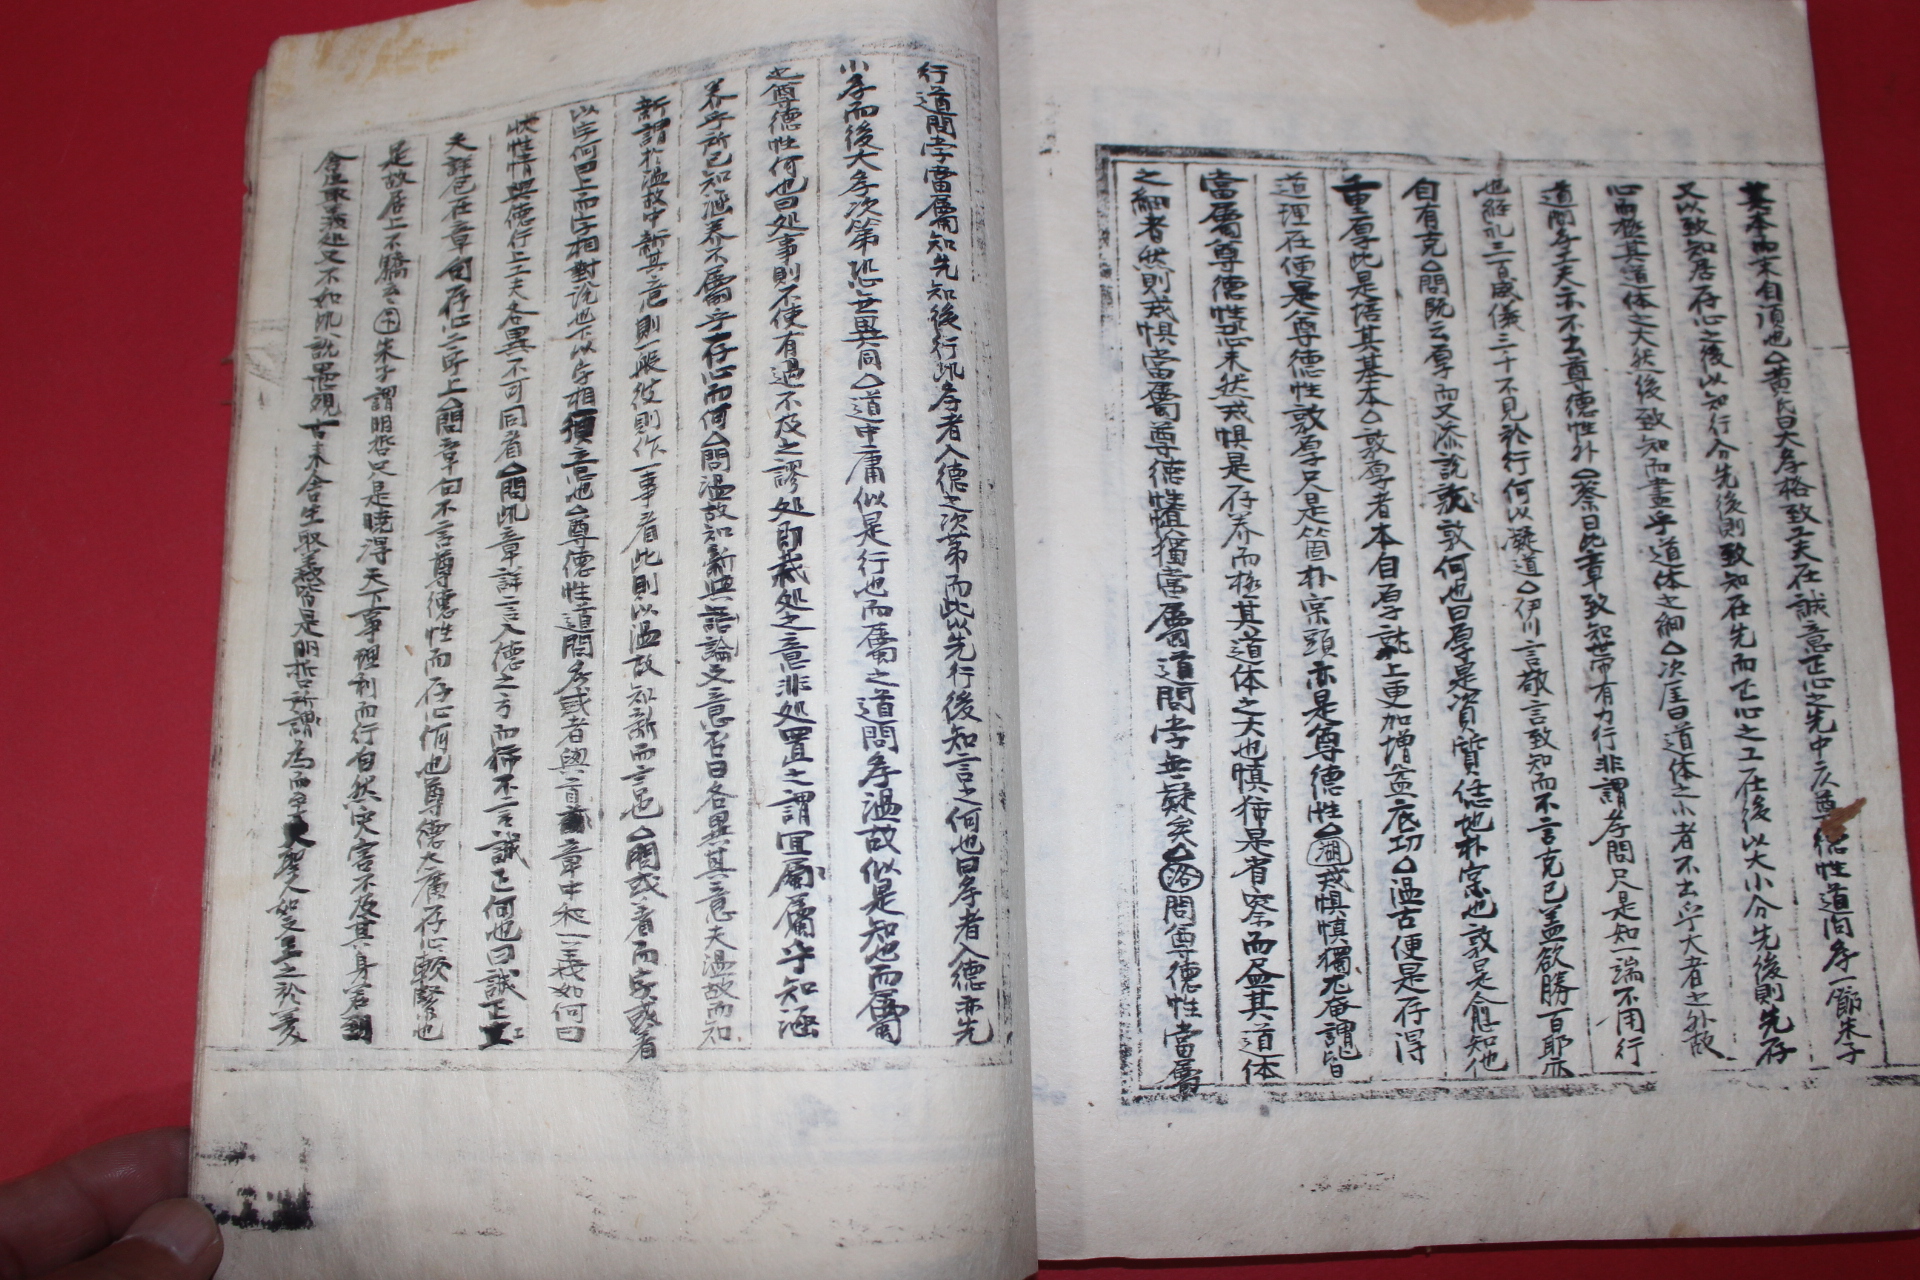 基本而末自順也△黃氏曰大孝格致工夫在誠意正心之先中庸尊德性道问孝一節朱子
又以致知居存心之後以知行分先後則致知在先而正心之工在後以大小分先後則先存
心而極其道体之大然後致知而盡乎道体之細△次厓曰道体之小者不出乎大者之外故
道問孝工夫亦不出尊德性外△蔡曰此章致知世常有力行非謂孝問只是知一端不用行
也經礼三百威儀三千不見於行何以凝道△伊川言敬言致知而不言克己盖欲勝百邪亦
自有克△問既云厚而又添說敦何也曰厚是資質恁地朴实也敦是愈加他
重厚此是培其基本△敦厚者本自厚就上更加增益底功△温古便是存得
道理在便是尊德性敦厚只是箇朴宲頭亦是尊德性△湖戒惧慎獨尤庵謂皆
當屬尊德性恐未然戒惧是存养而極其道体之大也慎獨是省察而盡其道体
之細者然則戒惧當屬尊德性慎獨當屬道問孝無疑矣△洛問尊德性當屬
行道問孝當屬知先知後行此孝者入德之次第而此以先行後知言之何也曰孝者入德亦先
小孝而後大孝次第恐無異同△道中庸似是行也而屬之道問孝温故似是知也而屬
之尊德性何也曰处事則不使有過不及之謬处即裁处之意非处置之謂宜屬屬乎知涵
养乎所已知涵养不屬乎存心而何△問温故知新與語論文意否曰各異其意夫温故而知
新謂於温故中新其意則一般彼則作一事看此則以温故知新而言也△問或者而字或看
以字何曰上而字相對說也下以字相須之意也△尊德性道問孝或者與首章中和一義如何曰
性情與德行上工夫各異不可同看△問此章詳言入德之方而獨不言誠正何也曰誠正工
夫詳已在章句存心二字上△問章句不言尊德性而存心何也尊德大廣存心較緊也
是故居上不驕云云㊉朱子謂明哲只是曉得天下事理利而行自然灾害不及其身若到
舍生取義处又不如此說愚覩古来舍生取義皆是明哲所謂